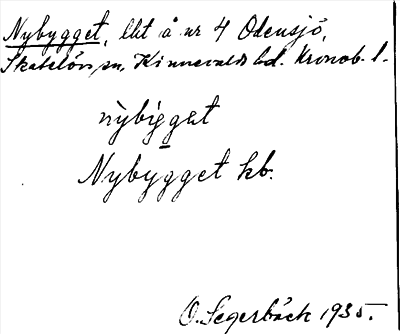 Nybygget, lht å nr 4 Odensjö,
Skatelövs sn, Kinnevalds hd. Kronob. l.
nỳbig̲gət
Nybygget kb.
O. Segerbäck 1935.